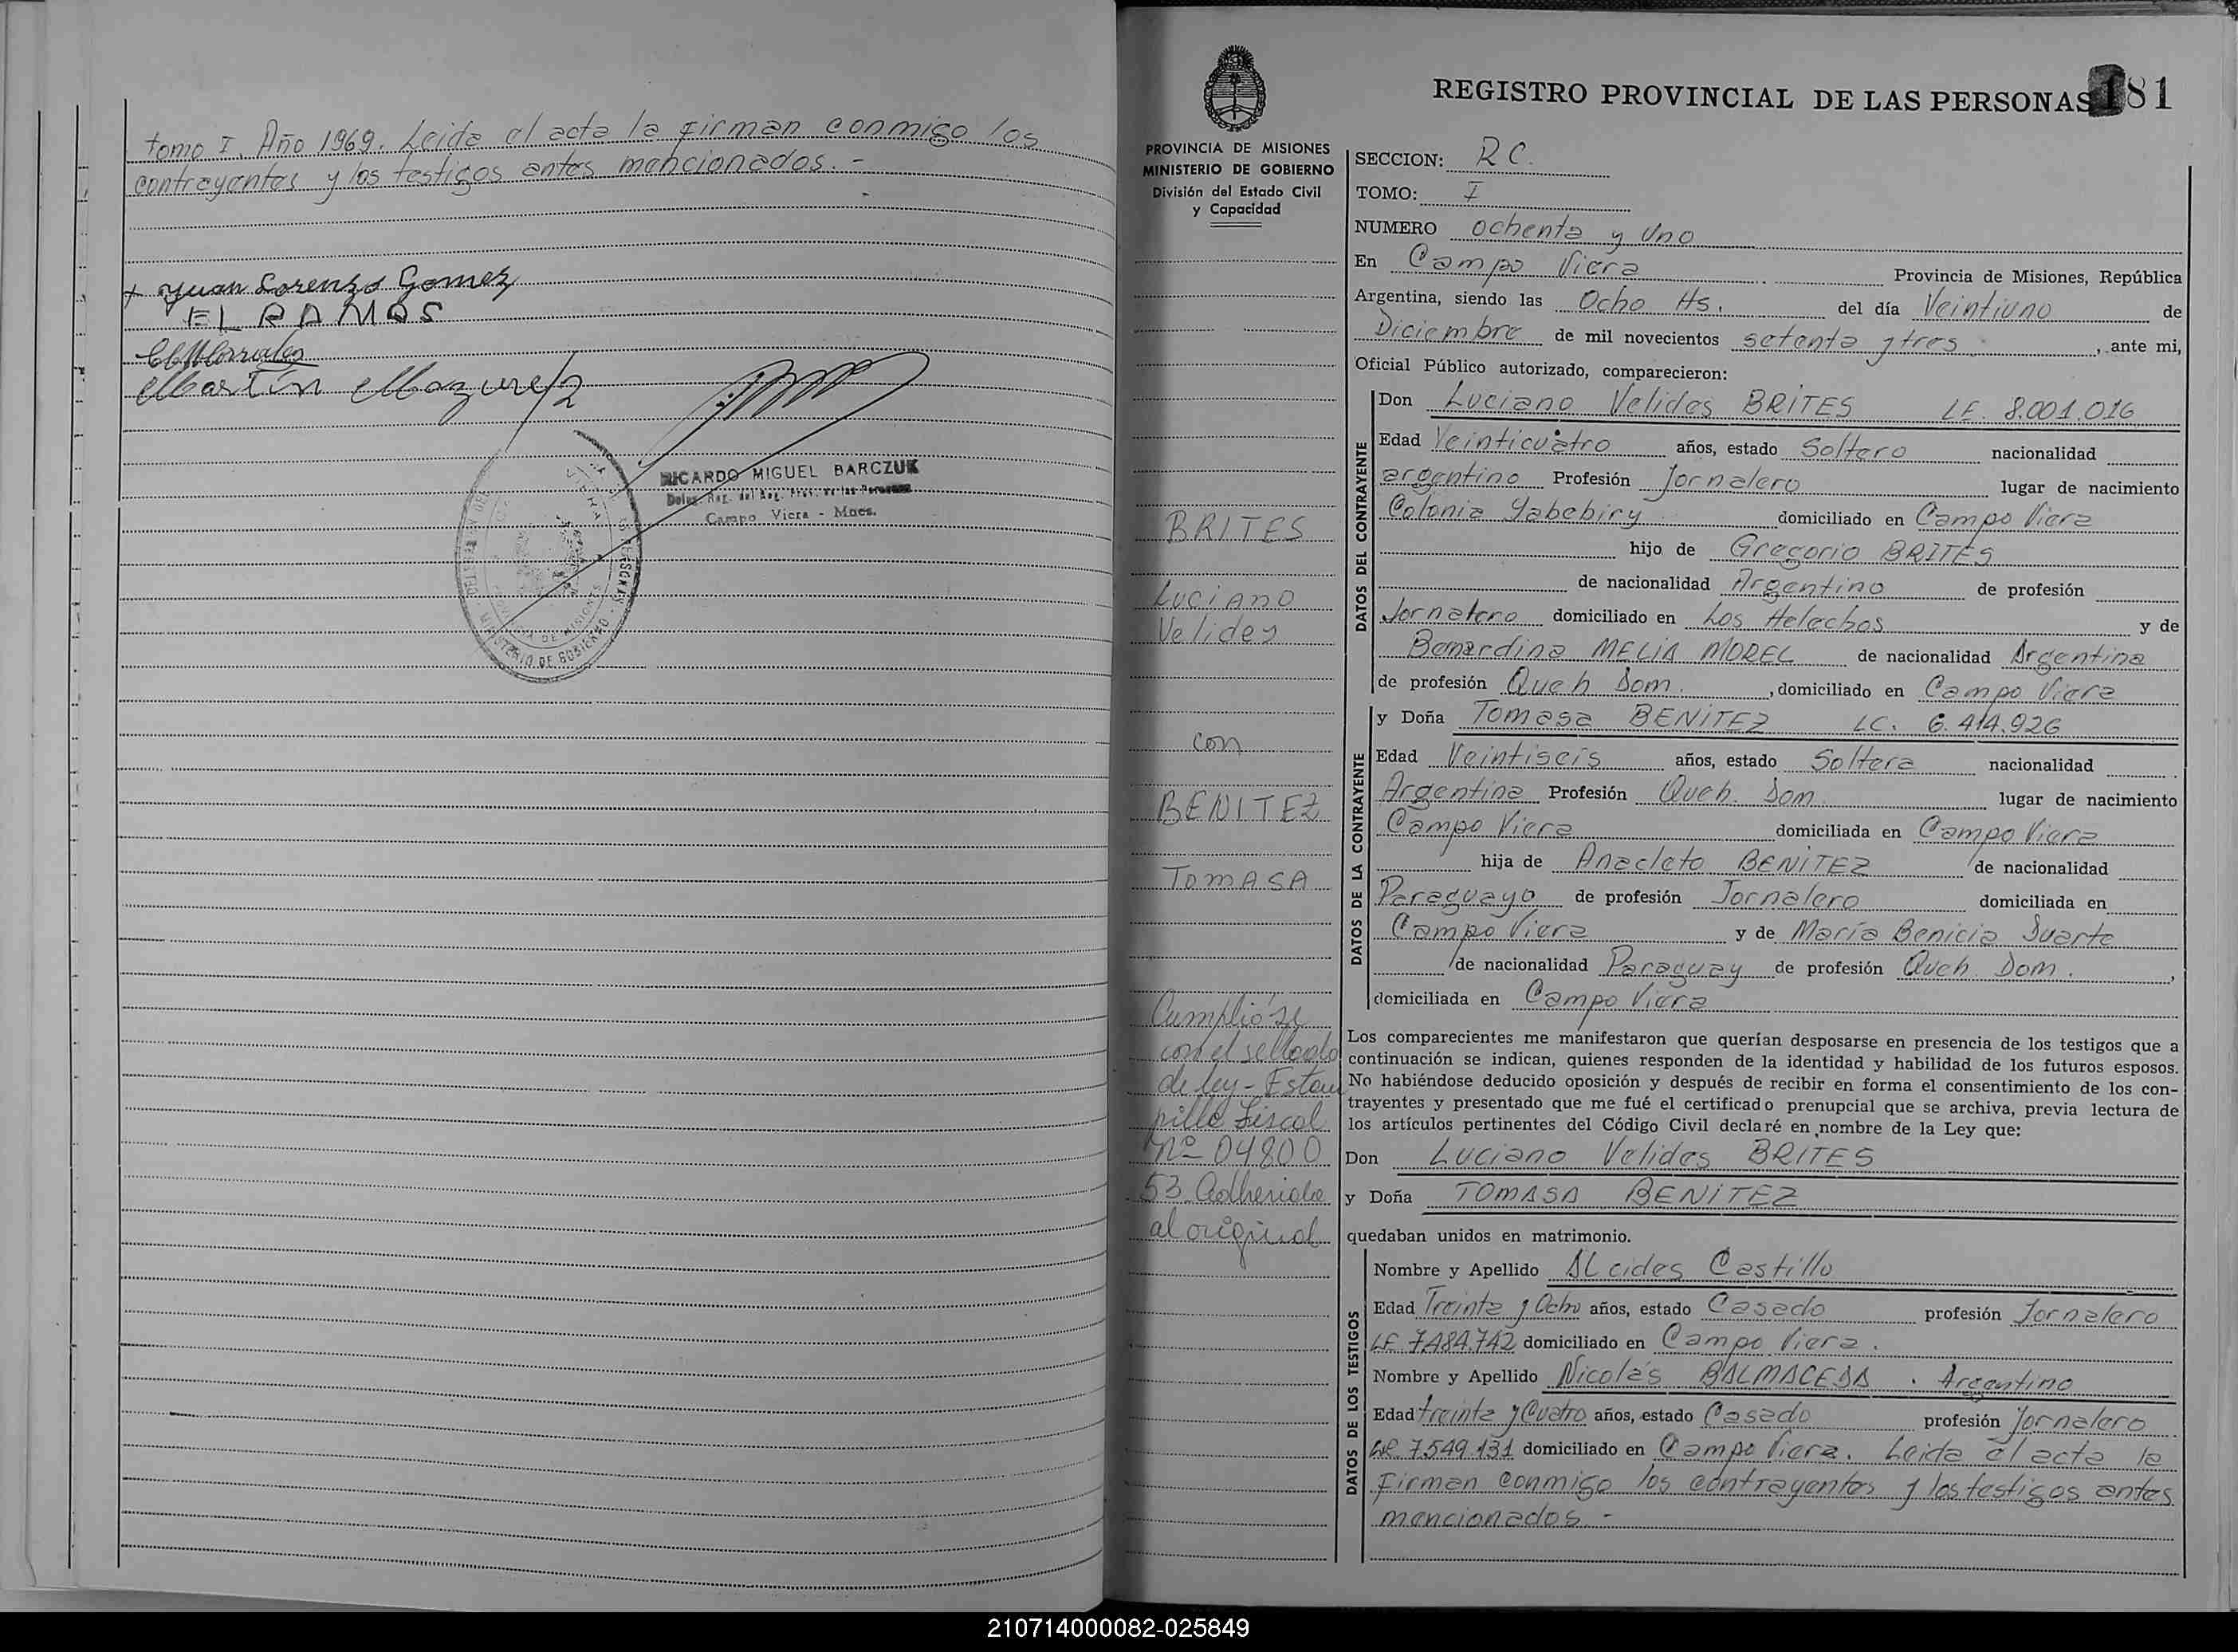 tomo I. Año 1969. Leida el acta la firman conmigo los
contrayentes y los testigos antes mencionados. -
x Juan Lorenzo Gomez
EL RAMOS
Martín
RICARDO MIGUEL BARCZUK
Campo Viera - Mnes.
MINISTERIO DE GOBIERNO
REGISTRO PROVINCIAL DE LAS PERSONAS 181
PROVINCIA DE MISIONES
MINISTERIO DE GOBIERNO
División del Estado Civil
y Capacidad
BRITES
Luciano
Velides
con
BENITEZ
TOMASA
Cumplióse
con el sellado
de ley - Estam
pilla fiscal
Nº 04800
53 Adherida
al original
SECCION: RC.
TOMO: I
NUMERO ochenta y uno
En Campo Viera Provincia de Misiones, República
Argentina, siendo las Ocho Hs. del día Veintiuno de
Diciembre de mil novecientos setenta y tres , ante mi,
Oficial Público autorizado, comparecieron:
DATOS DEL CONTRAYENTE
Don Luciano Velides BRITES LE. 8.001.016
Edad Veinticuatro años, estado Soltero nacionalidad
argentino Profesión Jornalero lugar de nacimiento
Colonia Yabebiry domiciliado en Campo Viera
hijo de Gregorio BRITES
de nacionalidad Argentino de profesión
Jornalero domiciliado en Los Helechos y de
Bernardina MELIA MOREL de nacionalidad Argentina
de profesión Queh Dom. , domiciliado en Campo Viera
DATOS DE LA CONTRAYENTE
y Doña Tomasa BENITEZ LC. 6.414.926
Edad Veintiseis años, estado Soltera nacionalidad
Argentina Profesión Queh. Dom lugar de nacimiento
Campo Viera domiciliada en Campo Viera
hija de Anacleto BENITEZ de nacionalidad
Paraguayo de profesión Jornalero domiciliada en
Campo Viera y de María Benicia Duarte
de nacionalidad Paraguay de profesión Queh Dom. ,
domiciliada en Campo Viera
Los comparecientes me manifestaron que querían desposarse en presencia de los testigos que a
continuación se indican, quienes responden de la identidad y habilidad de los futuros esposos.
No habiéndose deducido oposición y después de recibir en forma el consentimiento de los con-
trayentes y presentado que me fué el certificado prenupcial que se archiva, previa lectura de
los artículos pertinentes del Código Civil declaré en nombre de la Ley que:
Don Luciano Velides BRITES
y Doña TOMASA BENITEZ
quedaban unidos en matrimonio.
DATOS DE LOS TESTIGOS
Nombre y Apellido Alcides Castillo
Edad Treinta y Ocho años, estado Casado profesión Jornalero
LE 7.484.742 domiciliado en Campo Viera.
Nombre y Apellido Nicolás BALMACEDA . Argentino
Edad treinta y Cuatro años, estado Casado profesión Jornalero
7.549.131 domiciliado en Campo Viera. Leida el acta la
firman conmigo los contrayentes y los testigos antes
mencionados -
210714000082-025849